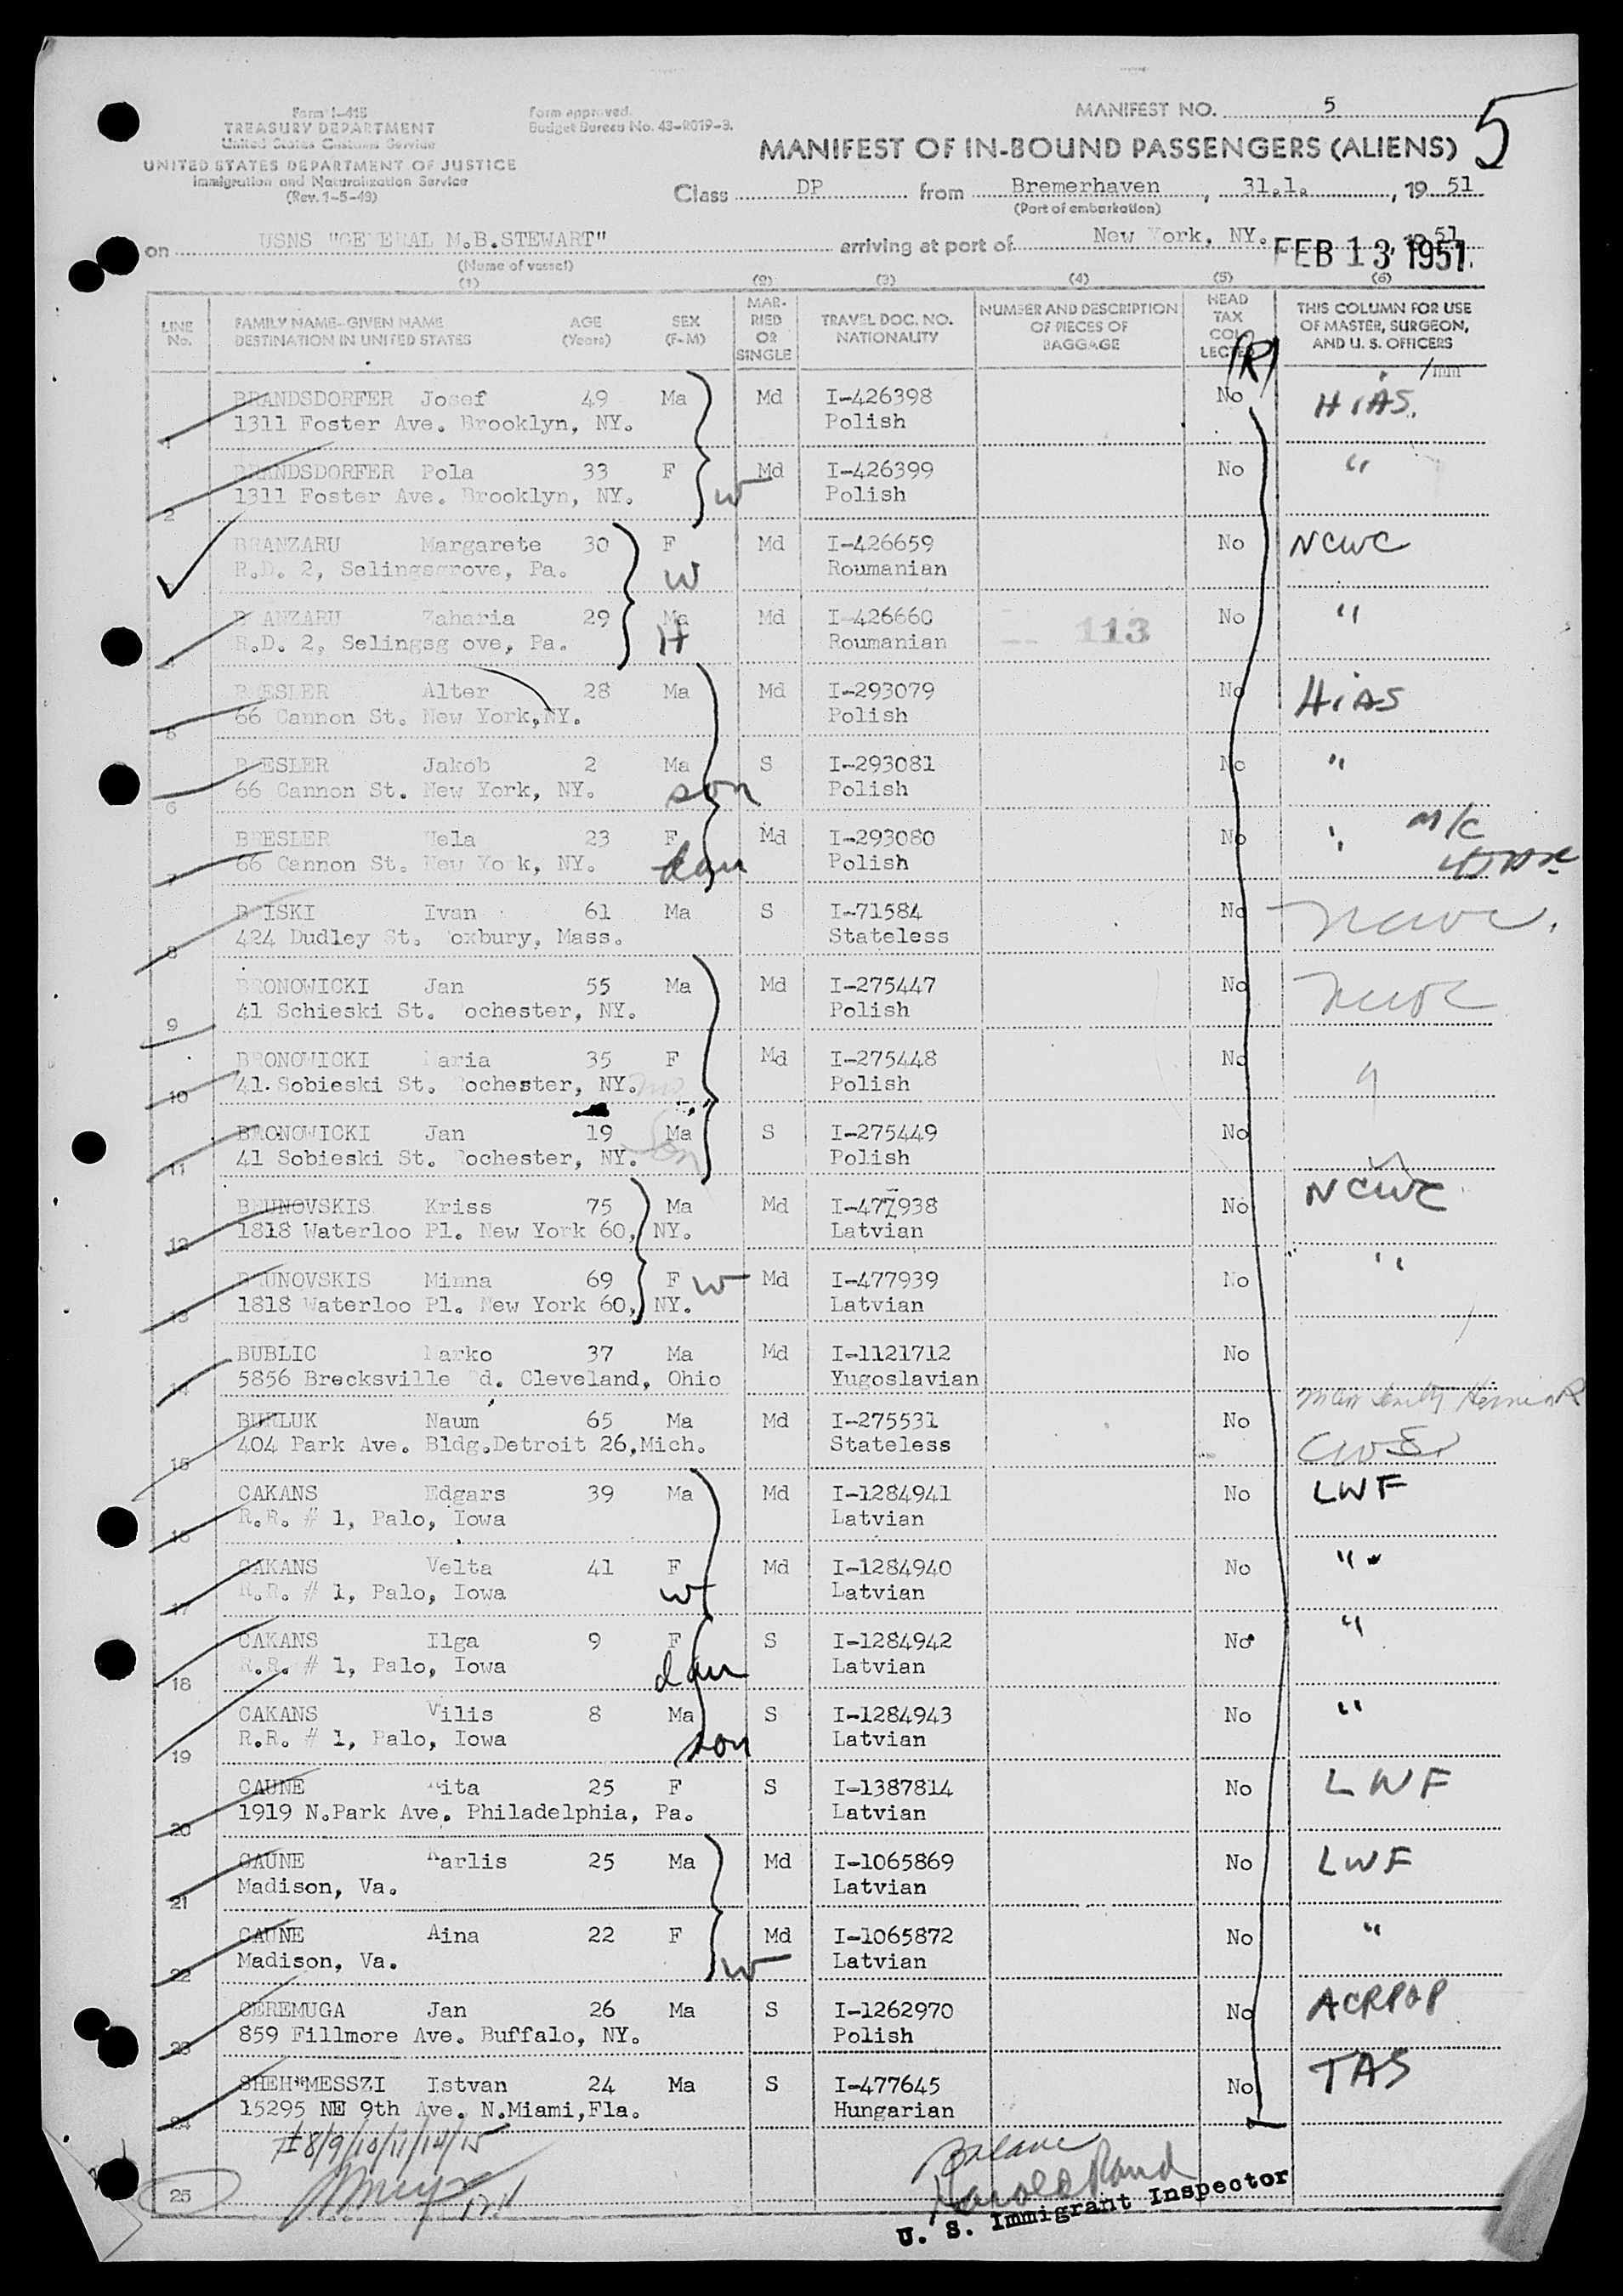 Form I-415
TREASURY DEPARTMENT
United States Customs Service
UNITED STATES DEPARTMENT OF JUSTICE
Immigration and Naturalization Service
(Rev. 1-5-49)
Form approved.
Budget Bureau No. 43-R019-3.
MANIFEST NO. 5
5
MANIFEST OF IN-BOUND PASSENGERS (ALIENS)
Class DP from Bremerhaven, 31.1., 19 51
(Port of embarkation)
on USNS "GENERAL M.B.STEWART" arriving at port of New York, NY. 51
FEB 13 1951.
(Name of vessel)
(1) (2) (3) (4) (5) (6)
LINE No. FAMILY NAME-GIVEN NAME DESTINATION IN UNITED STATES AGE (Years) SEX (F-M) MARRIED OR SINGLE TRAVEL DOC. NO. NATIONALITY NUMBER AND DESCRIPTION OF PIECES OF BAGGAGE HEAD TAX COLLECTED THIS COLUMN FOR USE OF MASTER, SURGEON, AND U. S. OFFICERS
(R)
BRANDSDORFER Josef 49 Ma Md I-426398 No HIAS.
1 1311 Foster Ave. Brooklyn, NY. Polish
BRANDSDORFER Pola 33 F W Md I-426399 No "
2 1311 Foster Ave. Brooklyn, NY. Polish
BRANZARU Margarete 30 F W Md I-426659 No NCWC
3 R.D. 2, Selingsgrove, Pa. Roumanian
BRANZARU Zaharia 29 Ma H Md I-426660 113 No "
4 R.D. 2, Selingsg ove, Pa. Roumanian
BRESLER Alter 28 Ma Md I-293079 No HIAS
5 66 Cannon St. New York,NY. Polish
BRESLER Jakob 2 Ma son S I-293081 No "
6 66 Cannon St. New York, NY. Polish
BRESLER Hela 23 F dau Md I-293080 No " M/C
7 66 Cannon St. New York, NY. Polish
BRISKI Ivan 61 Ma S I-71584 No NCWC.
8 424 Dudley St. Roxbury, Mass. Stateless
BRONOWICKI Jan 55 Ma Md I-275447 No NCWC
9 41 Schieski St. Rochester, NY. Polish
BRONOWICKI Maria 35 F Md I-275448 No "
10 41.Sobieski St. Rochester, NY. Polish
BRONOWICKI Jan 19 Ma Son S I-275449 No
11 41 Sobieski St. Rochester, NY. Polish
BRUNOVSKIS Kriss 75 Ma Md I-477938 No NCWC
12 1818 Waterloo Pl. New York 60, NY. Latvian
BRUNOVSKIS Minna 69 F W Md I-477939 No "
13 1818 Waterloo Pl. New York 60, NY. Latvian
BUBLIC Marko 37 Ma Md I-1121712 No
14 5856 Brecksville Rd. Cleveland, Ohio Yugoslavian
BURLUK Naum 65 Ma Md I-275531 No CWS.
15 404 Park Ave. Bldg.Detroit 26,Mich. Stateless
CAKANS Edgars 39 Ma Md I-1284941 No LWF
16 R.R. # 1, Palo, Iowa Latvian
CAKANS Velta 41 F W Md I-1284940 No "
17 R.R. # 1, Palo, Iowa Latvian
CAKANS Ilga 9 F dau S I-1284942 No "
18 R.R. # 1, Palo, Iowa Latvian
CAKANS Vilis 8 Ma son S I-1284943 No "
19 R.R. # 1, Palo, Iowa Latvian
CAUNE Rita 25 F S I-1387814 No LWF
20 1919 N.Park Ave. Philadelphia, Pa. Latvian
CAUNE Karlis 25 Ma Md I-1065869 No LWF
21 Madison, Va. Latvian
CAUNE Aina 22 F W Md I-1065872 No "
22 Madison, Va. Latvian
CEREMUGA Jan 26 Ma S I-1262970 No ACRPOP
23 859 Fillmore Ave. Buffalo, NY. Polish
SHEH"MESSZI Istvan 24 Ma S I-477645 No TAS
24 15295 NE 9th Ave. N.Miami,Fla. Hungarian
#8/9/10/11/14/15
Balance
Harold Rand
25
U. S. Immigrant Inspector